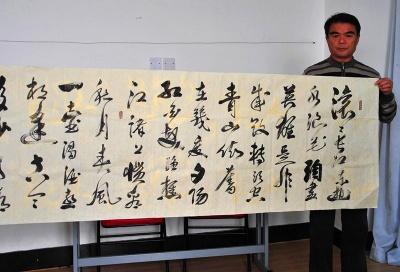 滚々长江东逝
水浪花淘盡
英雄是非
成败转头空
青山依舊
在幾度夕阳
红白发渔樵
江渚上惯看
秋月春风
一壶浊酒喜
相逢古今